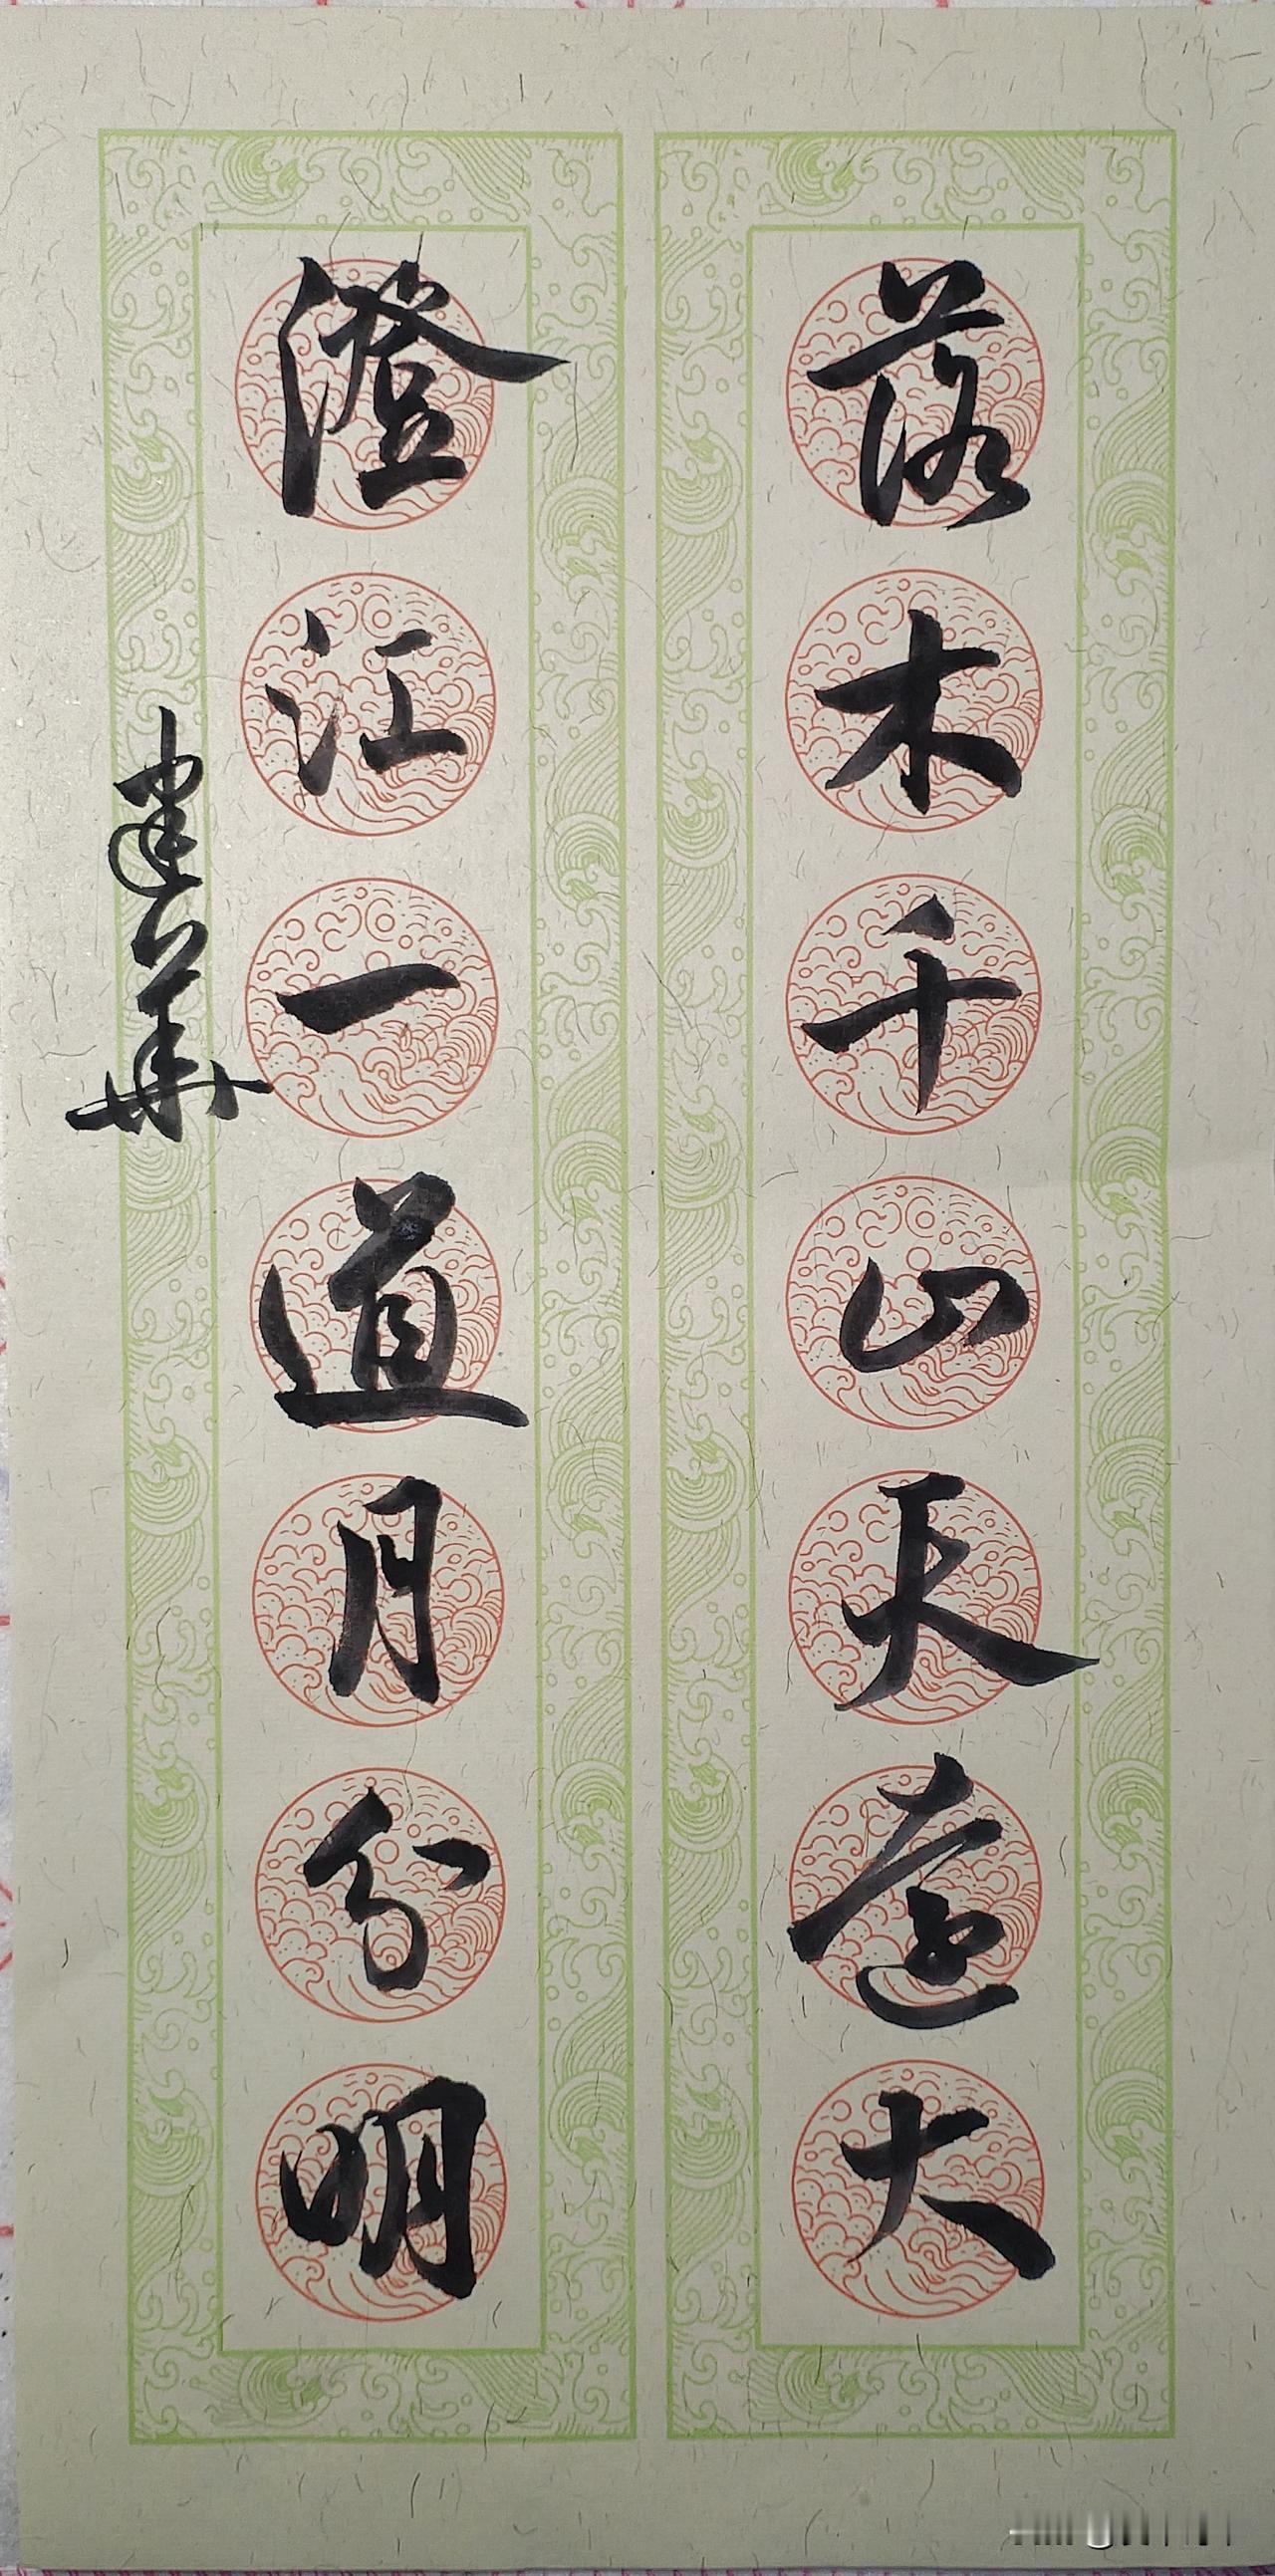 落木千山天遠大
澄江一道月分明
建華